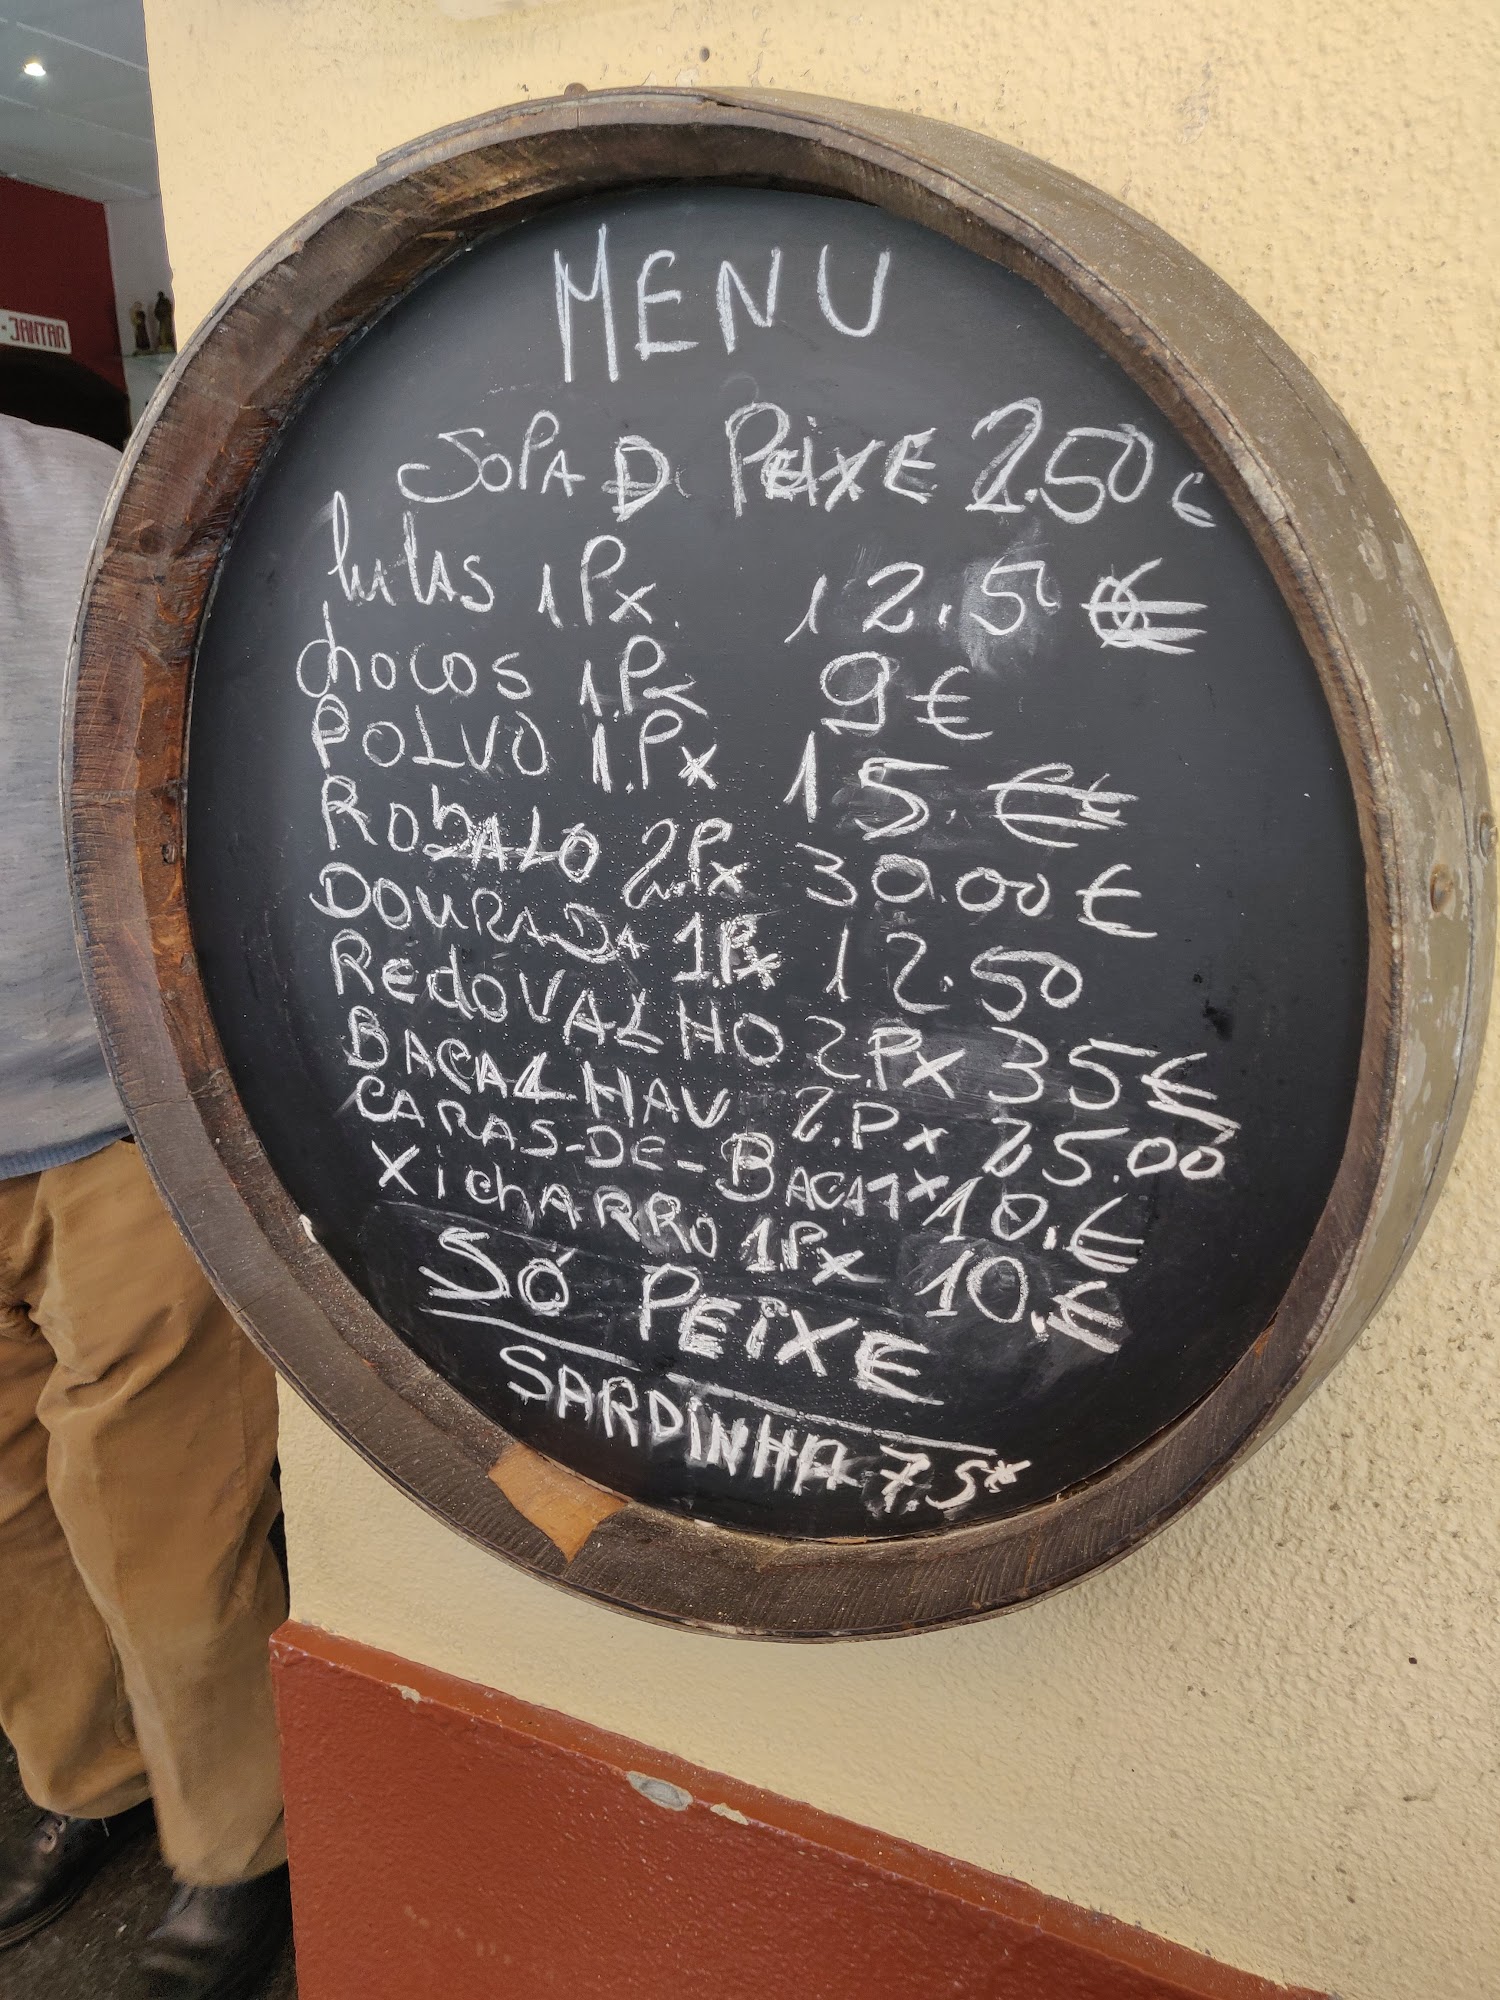 - JANTAR
MENU
SOPA D PEIXE 2.50 €
lulas 1 Px. 12.50 €
chocos 1.Px 9 €
POLVO 1.Px 15. €
ROBALO 2.Px 30.00 €
DOURADA 1.Px 12.50
REdOVALHO 2.Px 35 €
BACALHAU 2.Px 25.00
CARAS-DE-BACA 1x 10.€
XichARRO 1.Px 10.€
SÓ PEiXE
SARDiNHA 7.5